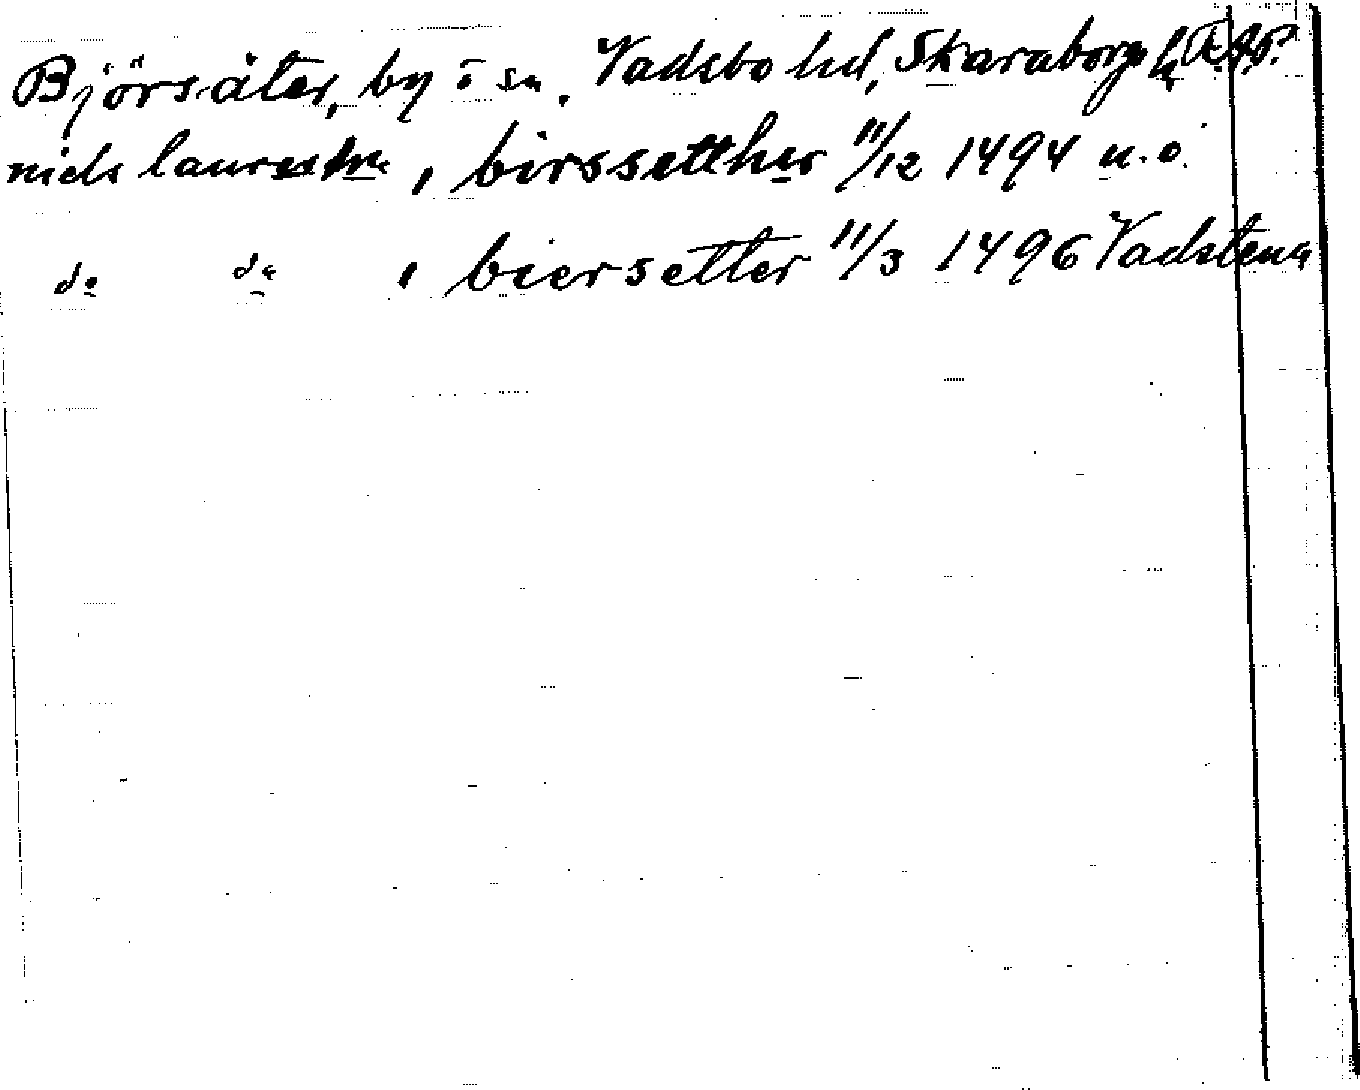 Björsäter, by o sn, Vadsbo hd, Skaraborgs l. R.A.P.
niels laurens , birssetther 11/12 1494 u.o.
do do , biersetter 11/3 1496 Vadstena